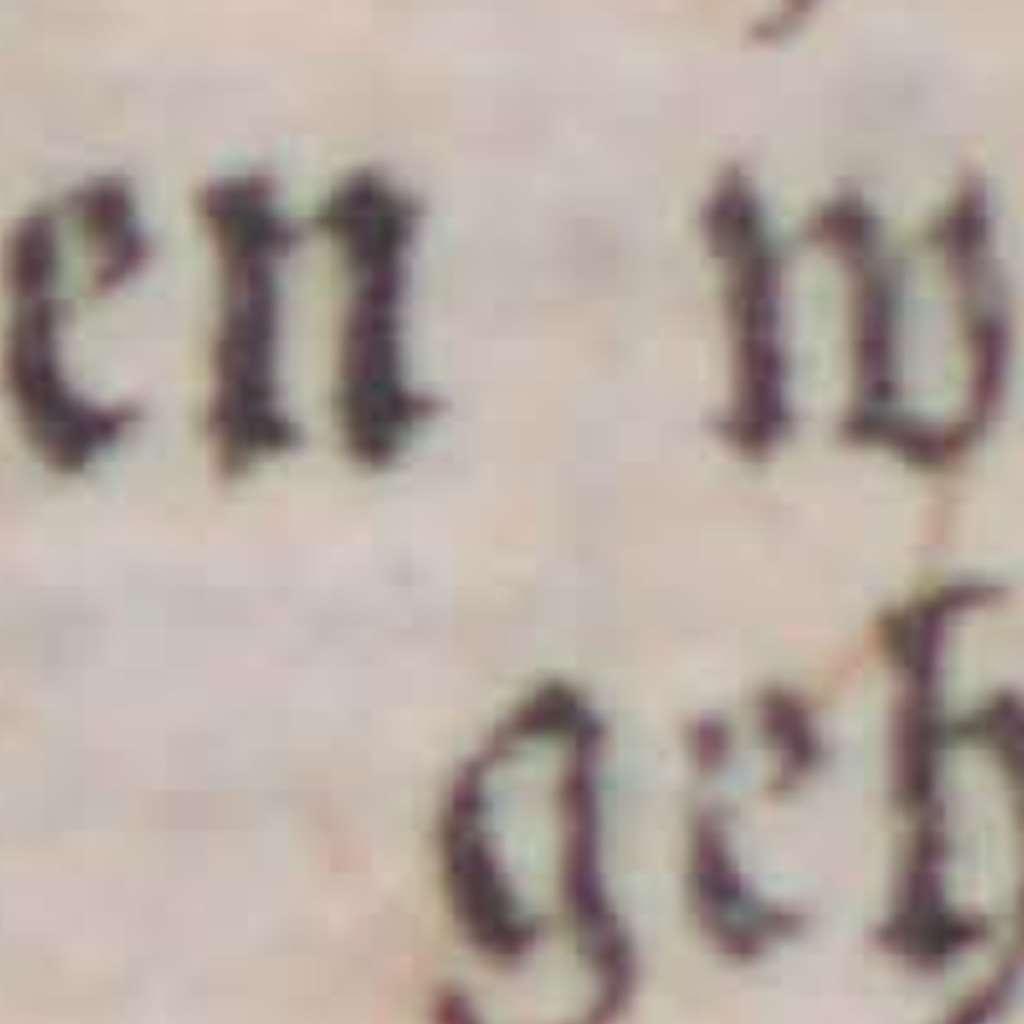 en w
geh